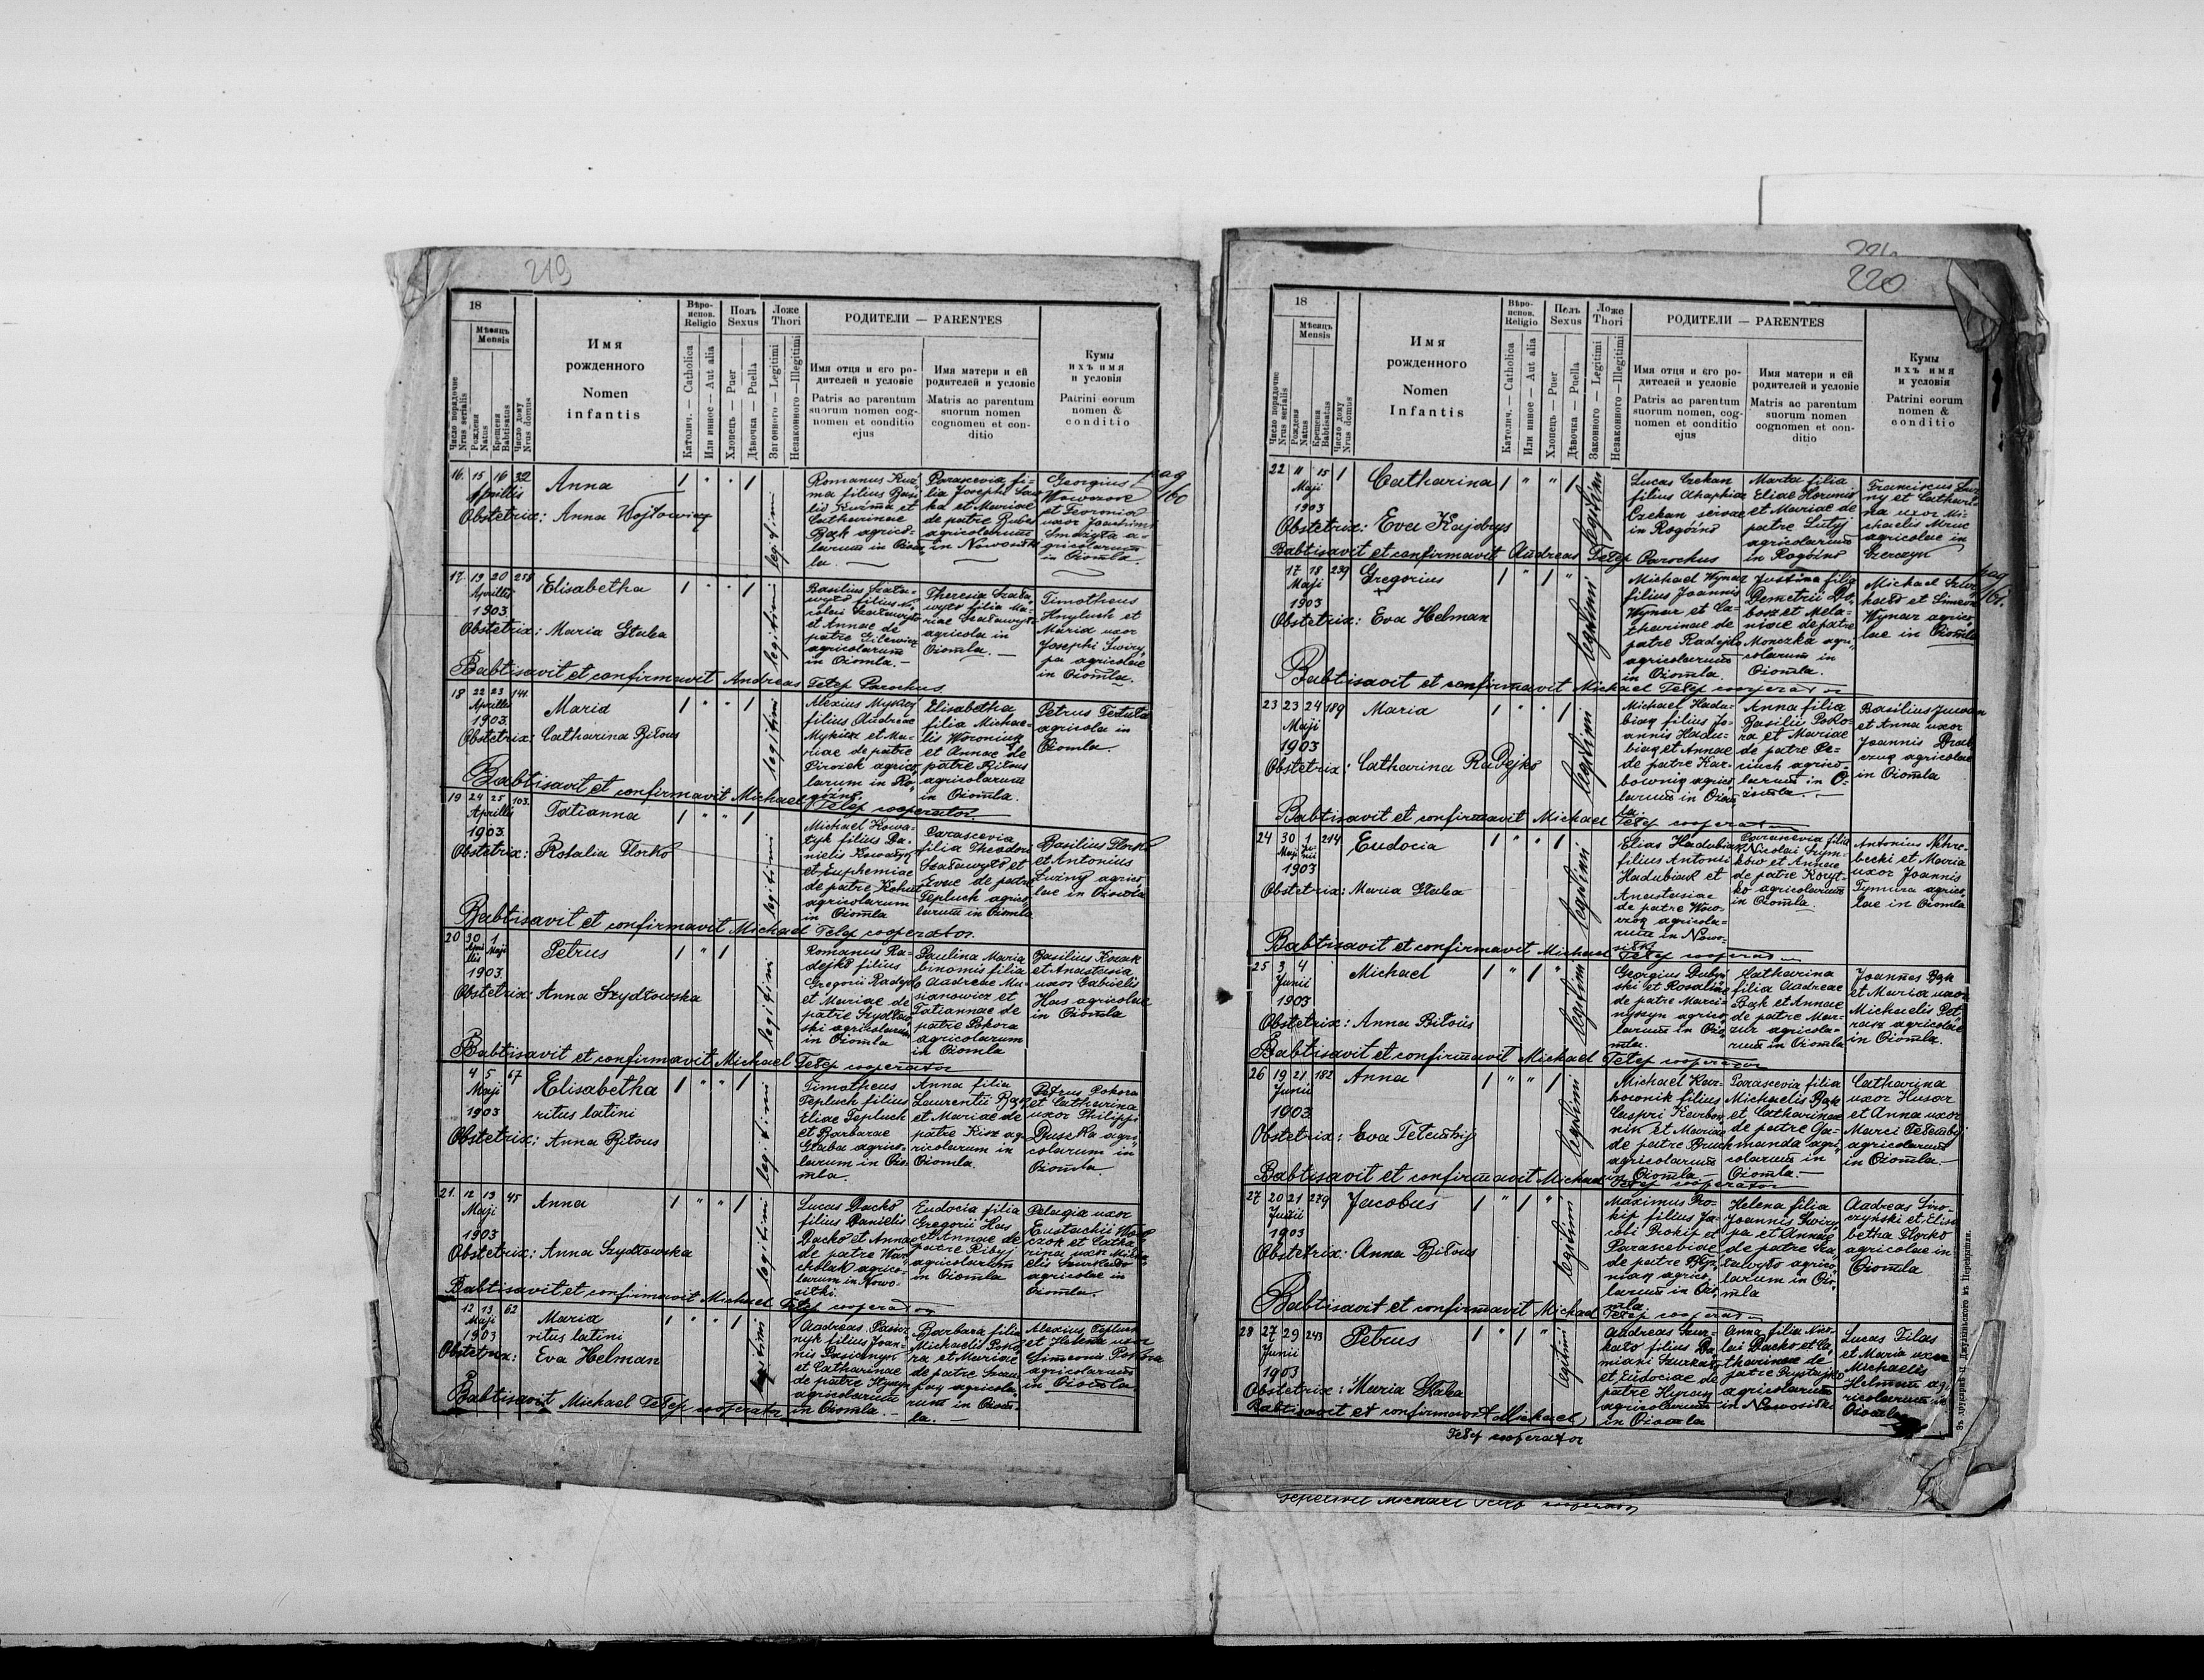 219
18
Мѣсяцъ
Mensis
Число порядочне
Nrus serialis
Рождена
Natus
Крещена
Babtisatus
Число дому
Nrus domus
Имя
рожденного
Nomen
infantis
Вѣро-
испов.
Religio
Католич. — Catholica
Или инное — Aut alia
Полъ
Sexus
Хлопець — Puer
Дѣвочка — Puella
Ложе
Thori
Законного — Legitimi
Незаконного — Illegitimi
РОДИТЕЛИ — PARENTES
Имя отця и его ро-
дителей и условіе
Patris ac parentum
suorum nomen cog-
nomen et conditio
ejus
Имя матери и ей
родителей и условіе
Matris ac parentum
suorum nomen
cognomen et con-
ditio
Кумы
ихъ имя
и условія
Patrini eorum
nomen &
conditio
16. 15 16 32
Aprillis
Anna
Obstetrix: Anna Wojtowicz
legitimi
Romanus Kuź-
ma filius Basi-
lii Kuźma et
Catharinae
Bąk agrico-
larum in Ożom-
la.
Parascevia fi-
lia Josephi
et Mariae
de patre
agricolarum
in Nowosiłki
Georgius
et
uxor Joachimi
a-
gricolarum
in Ożomla.
pag
160
17. 19 20 258
Aprillis
1903
Elisabetha
Obstetrix: Maria Głaba
legitimi
Basilius Szała-
wyło filius Ni-
colai Szaławyło
et Annae de
patre
agricolarum
in Ożomla.
Theresia Szała-
wyło filia Ma-
riae Szaławyło
agricola in
Ożomla.
Timotheus
Hnyluch et
Maria uxor
Josephi Świry-
pa agricolae
in Ożomla.
Babtisavit et confirmavit Andreas Telep Parochus.
18 22 23 141.
Aprillis
1903.
Maria
Obstetrix: Catharina Biłous
legitimi
Alexius Mykicz
filius Andreae
Mykicz et Ma-
riae de patre
Pirożek agrico-
larum in Ro-
góźno.
Elisabetha
filia Michae-
lis Woroniusz
et Annae de
patre Biłous
agricolarum
in Ożomla.
Petrus
agricola in
Ożomla.
Babtisavit et confirmavit Michael Telep cooperator.
19 24 25 103.
Aprillis
1903.
Tatianna
Obstetrix: Rosalia Florko
legitimi
Michael Kowa-
lyk filius Da-
nielis Kowalyk
et Euphemiae
de patre
agricolarum
in Ożomla
Parascevia
filia Theodori
Szaławyło et
Evae de patre
Tepluch agrico-
larum in Ożomla
Basilius Florko
et Antonius
agrico-
lae in Ożomla
Babtisavit et confirmavit Michael Telep cooperator.
20 30 1
Apri-
llis
Maji
1903.
Petrus
Obstetrix: Anna Szydłowska
legitimi
Romanus Ra-
dejko filius
Gregorii Radejko
et Mariae de
patre Szydłow-
ski agricolarum
in Ożomla
Paulina Maria
binomis filia
Andreae Mu-
sianowicz et
Tatiannae de
patre Pokora
agricolarum
in Ożomla
Basilius Kozak
et Anastasia
uxor Gabrielis
Has agricolae
in Ożomla
Babtisavit et confirmavit Michael Telep cooperator
4 5 67
Maji
1903
Elisabetha
ritus latini
Obstetrix: Anna Biłous
legitimi
Timotheus
Tepluch filius
Eliae Tepluch
et Barbarae
Głaba agrico-
larum in Ożo-
mla.
Anna filia
Laurentii Bąk
et Mariae de
patre Kisz ag-
ricolarum in
Ożomla.
Petrus Pokora
et Catharina
uxor Philippi
Duszka agri-
colarum in
Ożomla
21. 12 13 45
Maji
1903
Anna
Obstetrix: Anna Szydłowska
legitimi
Lucas Dacko
filius Danielis
Dacko et Annae
de patre War-
cholak agrico-
larum in Nowo-
siłki.
Eudocia filia
Gregorii Has
et Annae de
patre Ribyj
agricolarum
in Ożomla
Pelagia uxor
Eustachii
et Catha-
rina uxor Micha-
elis
agricolae in
Ożomla.
Babtisavit et confirmavit Michael Telep cooperator
12 13 62
Maji
1903
Maria
ritus latini
Obstetrix: Eva Helman
legitimi
Andreas Pasicz-
nyk filius Joan-
nis Pasicznyk
et Catharinae
de patre
agricolarum
in Ożomla.
Barbara filia
Michaelis Poko-
ra et Mariae
de patre
agricola-
rum in Ożom-
la.
Alexius Tepluch
et Helena uxor
Simeonis Pokora
agricolarum
in Ożomla
Babtisavit Michael Telep cooperator
220
18
Мѣсяцъ
Mensis
Число порядочне
Nrus serialis
Рождена
Natus
Крещена
Babtisatus
Число дому
Nrus domus
Имя
рожденного
Nomen
Infantis
Вѣро-
испов.
Religio
Католич. — Catholica
Или инное — Aut alia
Полъ
Sexus
Хлопець — Puer
Дѣвочка — Puella
Ложе
Thori
Законного — Legitimi
Незаконного — Illegitimi
РОДИТЕЛИ — PARENTES
Имя отця и его ро-
дителей и условіе
Patris ac parentum
suorum nomen, cog-
nomen et conditio
ejus
Имя матери и ей
родителей и условіе
Matris ac parentum
suorum nomen
cognomen et con-
ditio
Кумы
ихъ имя
и условія
Patrini eorum
nomen &
conditio
22 11 15 1
Maji
1903
Catharina
Obstetrix: Eva Kajdrys
legitimi
Lucas Czekan
filius Ahaphiae
Czekan
in Rogóźno
Marta filia
Eliae
et Mariae de
patre Lutyj
agricolarum
in Rogóźno
Franciscus
et Cathari-
na uxor Mi-
chaelis Mruc
agricolae in
Szerczyn
Babtisavit et confirmavit Andreas Telep Parochus
17 18 239
Maji
1903
Gregorius
Obstetrix: Eva Helman
legitimi
Michael Wynar
filius Joannis
Wynar et Ca-
tharinae de
patre Radejko
agricolarum
in Ożomla.
Justina filia
Demetrii Do-
bosz et Mela-
niae de patre
Monczka agri-
colarum in
Ożomla.
Michael
et Simeon
Wynar agrico-
lae in Ożomla
pag
161.
Babtisavit et confirmavit Michael Telep cooperator
23 23 24 189
Maji
1903
Maria
Obstetrix: Catharina Radejko
legitimi
Michael Hadu-
biag filius Jo-
annis Hadu-
biag et Annae
de patre Kar-
bownig agrico-
larum in Ożom-
la.
Anna filia
Basilii Poko-
ra et Mariae
de patre Pe-
ciuch agrico-
larum in O-
żomla.
Basilius
et Anna uxor
Joannis
agricolae
in Ożomla
Babtisavit et confirmavit Michael Telep cooperator
24 30 1 214
Maji Ju-
nii
1903
Eudocia
Obstetrix: Maria Głaba
legitimi
Elias Hadubiak
filius Antonii
Hadubiak et
Anastasiae
de patre Wow-
czog agricola-
rum in Nowo-
siłki
Parascevia filia
Nicolai Szym-
ków et Annae
de patre Koryt-
ko agricolarum
in Ożomla.
Antonius Nahre-
becki et Maria
uxor Joannis
Tymura agrico-
lae in Ożomla
Babtisavit et confirmavit Michael Telep cooperator
25 3 4
Junii
1903
Michael
Obstetrix: Anna Biłous
legitimi
Georgius Dubyń-
ski et Rosaliae
de patre Marci-
nyszyn agrico-
larum in Ożo-
mla.
Catharina
filia Andreae
Bąk et Annae
de patre Mar-
zur agricola-
rum in Ożomla
Joannes Bąk
et Maria uxor
Michaelis Pet-
rasz agricolae
in Ożomla.
Babtisavit et confirmavit Michael Telep cooperator
26 19 21 182
Junii
1903
Anna
Obstetrix: Eva Telembij
legitimi
Michael Kar-
bownik filius
Caspri Karbow-
nik et Mariae
de patre Bruch
agricolarum
in Ożomla.
Parascevia filia
Michaelis Bąk
et Catharinae
de patre Ga-
manda agri-
colarum in
Ożomla.
Catharina
uxor Husar
et Anna uxor
Marci Telembij
agricolarum
in Ożomla.
Babtisavit et confirmavit Michael Telep cooperator
27 20 21 279
Junii
1903
Jacobus
Obstetrix: Anna Biłous
legitimi
Maximus Pro-
kip filius Ja-
cobi Prokip et
Parasceviae
de patre
agrico-
larum in Ożo-
mla.
Helena filia
Joannis Świry-
pa et Annae
de patre Sza-
ławyło agrico-
larum in Ożo-
mla
Andreas Siro-
czyński et Elisa-
betha Florko
agricolae in
Ożomla
Babtisavit et confirmavit Michael Telep cooperator
28 27 29 243
Junii
1903
Petrus
Obstetrix: Maria Głaba
legitimi
Andreas Szur-
kało filius Da-
miani Szurkało
et Eudociae de
patre Hyrauy
agricolarum
in Ożomla
Anna filia Nico-
lai Dacko et Ca-
tharinae de
patre Prystajko
agricolarum
in Nowosiłki
Lucas Filas
et Maria uxor
Michaelis
Helman ag-
ricolarum in
Ożomla
Babtisavit et confirmavit Michael
Telep cooperator
Зъ друкарнѣ Джулыньского въ Перемышли.